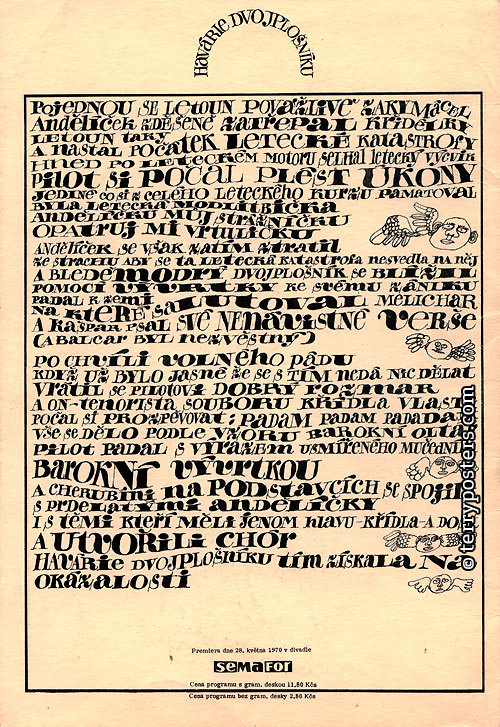 HAVÁRIE DVOJPLOŠNÍKU
POJEDNOU SE LETOUN POVÁŽLIVĚ ZAKYMÁCEL
ANDĚLÍČEK ZDĚŠENĚ ZATŘEPAL KŘIDÉLKY
LETOUN TAKY
A NASTAL POČÁTEK LETECKÉ KATASTROFY
IHNED PO LETECKÉM MOTORU SELHAL LETECKÝ VÝCVIK
PILOT SI POČAL PLÉST ÚKONY
JEDINÉ CO SI Z CELÉHO LETECKÉHO KURZU PAMATOVAL
BYLA LETECKÁ MODLITBIČKA
ANDĚLÍČKU MŮJ STRÁŽNÍČKU
OPATRUJ MI VRTULIČKU
ANDĚLÍČEK SE VŠAK ZATÍM ZTRATIL
ZE STRACHU ABY SE TA LETECKÁ KATASTROFA NESVEDLA NA NĚJ
A BLEDĚMODRÝ DVOJPLOŠNÍK SE BLÍŽIL
POMOCÍ VÝVRTKY KE SVÉMU ZÁNIKU
PADAL K ZEMI
NA KTERÉ SALUTOVAL MELICHAR
A KAŠPAR PSAL SVÉ NENÁVISTNÉ VERŠE
(A BALCAR BYL NEZVĚSTNÝ)
PO CHVÍLI VOLNÉHO PÁDU
KDYŽ UŽ BYLO JASNÉ ŽE SE S TÍM NEDÁ NIC DĚLAT
VRÁTIL SE PILOTOVI DOBRÝ ROZMAR
A ON-TENORISTA SOUBORU KŘÍDLA VLAST
POČAL SI PROZPĚVOVAT: PADÁM PADÁM PADÁDÁ
VŠE SE DĚLO PODLE VZORU BAROKNÍ OLTÁ
PILOT PADAL S VÝRAZEM USMÍŘENÉHO MUČEDNÍ
BAROKNÍ VÝVRTKOU
A CHERUBÍNI NA PODSTAVCÍCH SE SPOJIL
S PRDELATÝMI ANDĚLÍČKY
I S TĚMI KTEŘÍ MĚLI JENOM HLAVU-KŘÍDLA-A DOST
A UTVOŘILI CHÓR
HAVÁRIE DVOJPLOŠNÍKU TÍM ZÍSKALA NA
OKÁZALOSTI
Premiera dne 28. května 1970 v divadle
SEMAFOR
Cena programu s gram. deskou 11,80 Kčs
Cena programu bez gram. desky 2,80 Kčs
© terryposters.com